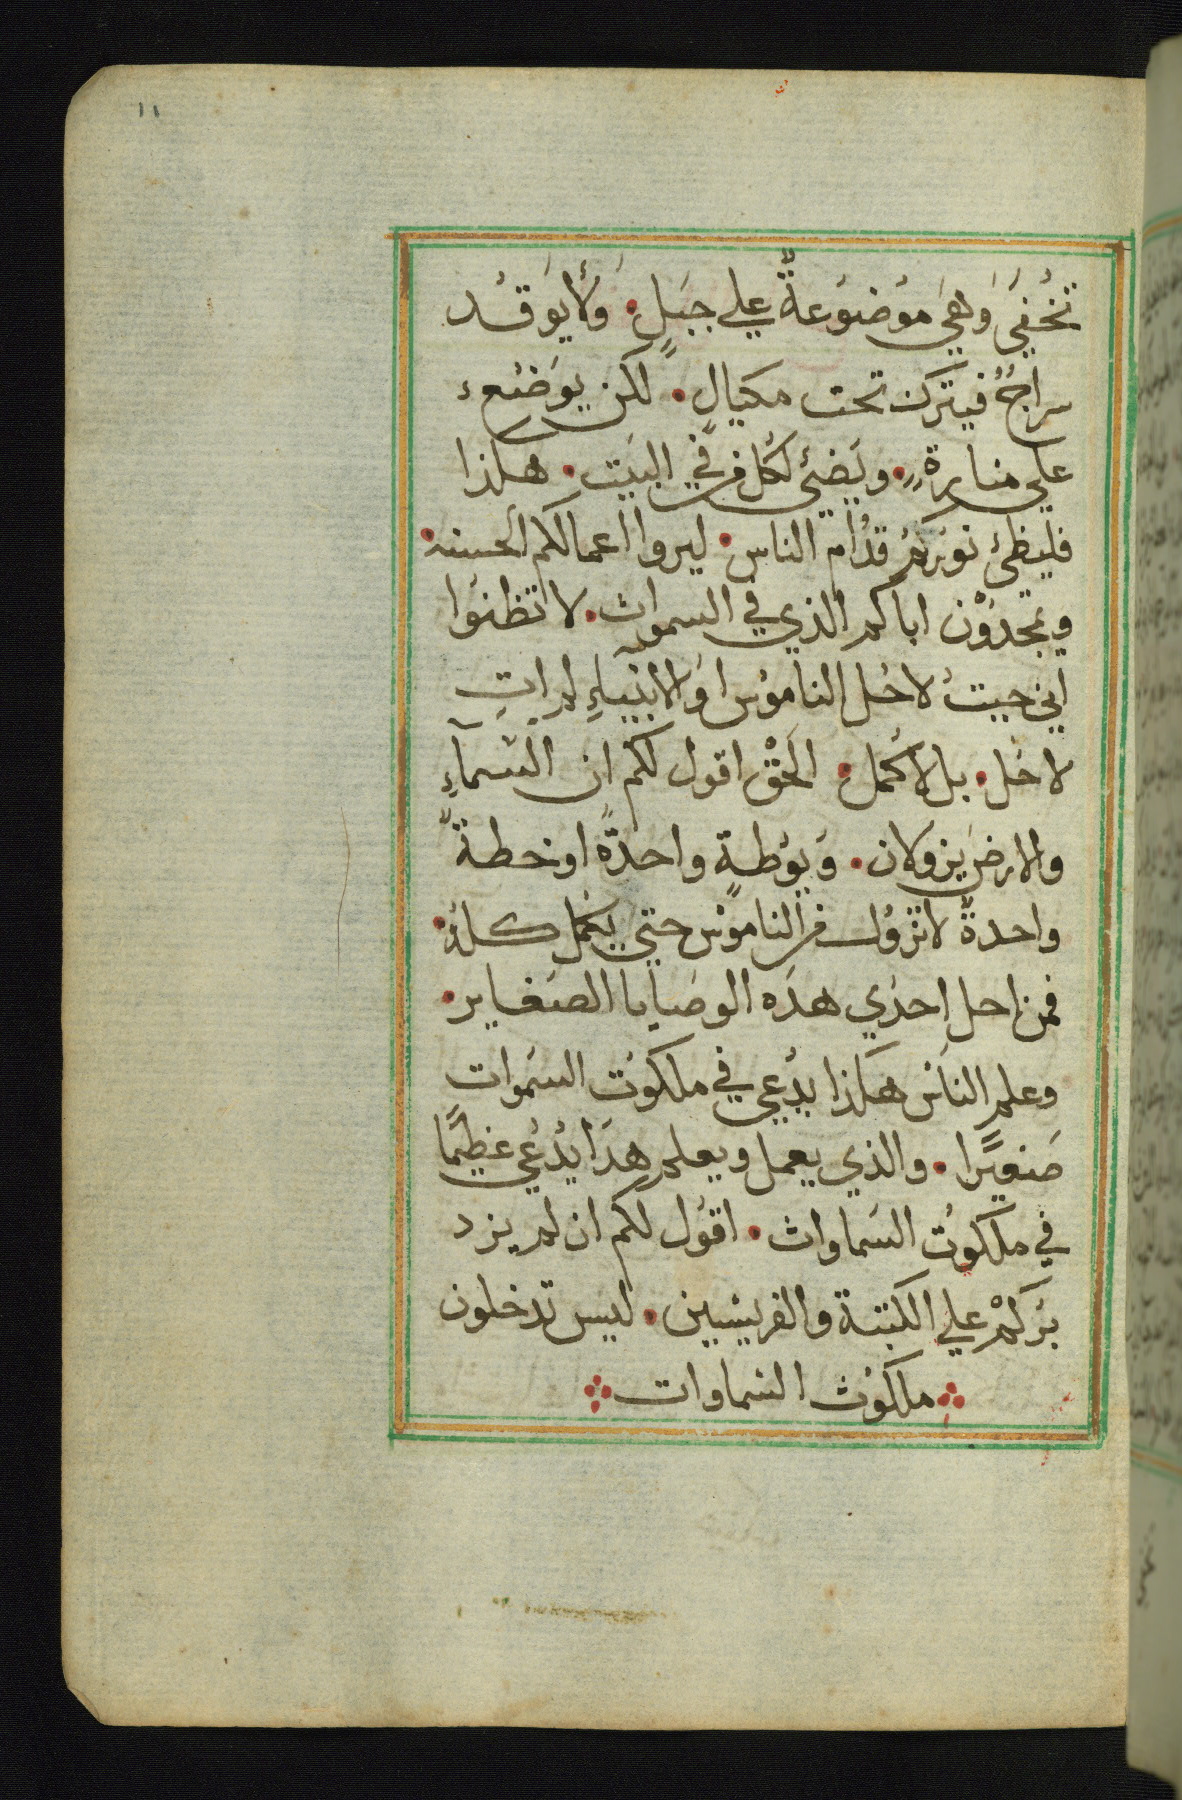 ١١
تخُفيَ وَهيَ موُضوُعةً علي جبَلٍ. ولا يوَقدُ
سراجٌ فيترك تحت مكيالٍ. لكن يوَضعُ
علي منارةٍ. ويَضيُ لكل من في البيَت. هكذا
فليضئ نورَكم قدُام الناس. ليروا اعمالكم الحسنه.
ويمجدوُن اباكم الذي في السمواث. لا تظنوُا
اني جيتُ لاحُل الناموُس او الانبياءِ لم اتِ
لاحُل. بل لاكُمل. الحَقْ اقول لكم ان السَمآءِ
والارضَ يزولان. وَيوُطةٍ واحدةً او خطةً
واحدةً لا تزوُل من الناموُس حتي يكمُل كلهُ.
فمن احل احدَي هذَه الوصَايا الصَغاير.
وعلم الناسَ هكذا يدُعي في ملكوُت السَموات
صَغيرًا. والذي يعمل ويعلم هذَا يدُعي عظيمًا
في ملكوُت السَماواث. اقوُل لكم ان لم يزد
برَكمْ علي الكتبة والفريسيين. ليس تدخلون
ملكوُث السَماوات